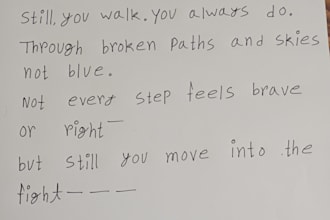 Still, you walk. You always do.
Through broken paths and skies
not blue.
Not every step feels brave
or right—
but still you move into the
fight— — —